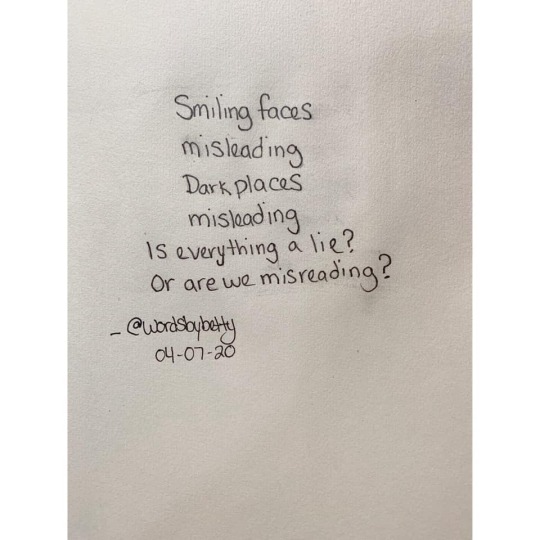 Smiling faces
misleading
Dark places
misleading
Is everything a lie?
Or are we misreading?
- @wordsbybetty
04-07-20